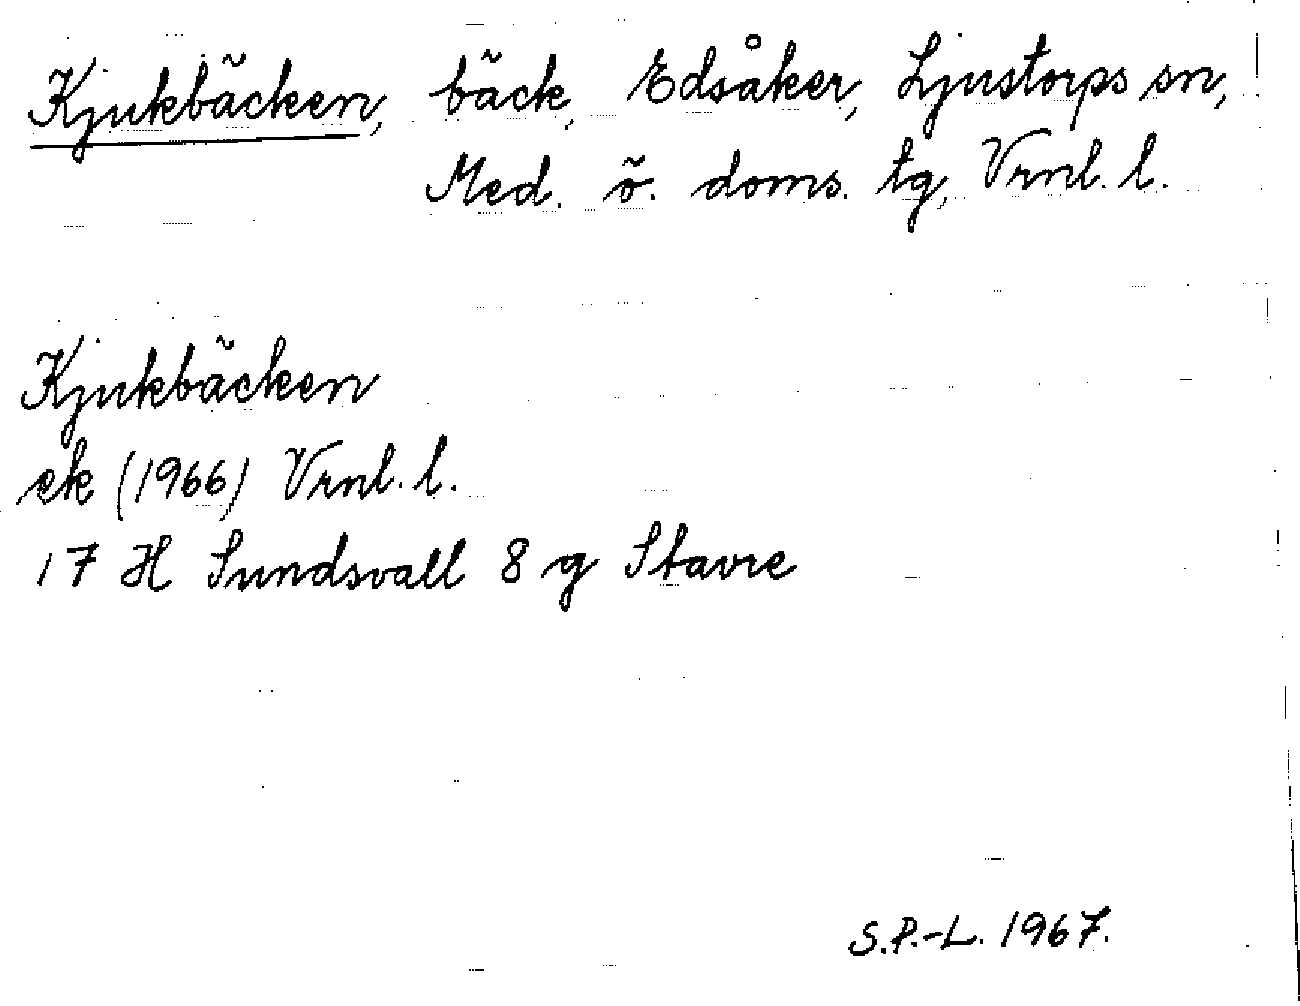 Kjukbäcken, bäck, Edsåker, Ljustorps sn,
Med. ö. doms. tg, Vrnl. l.
Kjukbäcken
ek (1966) Vrnl. l.
17 H Sundsvall 8 g Stavre
S.P.-L. 1967.